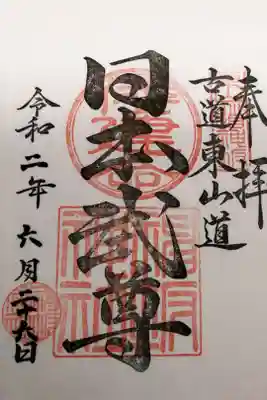 奉拝
古道東山道
日本武尊
令和二年六月二十六日